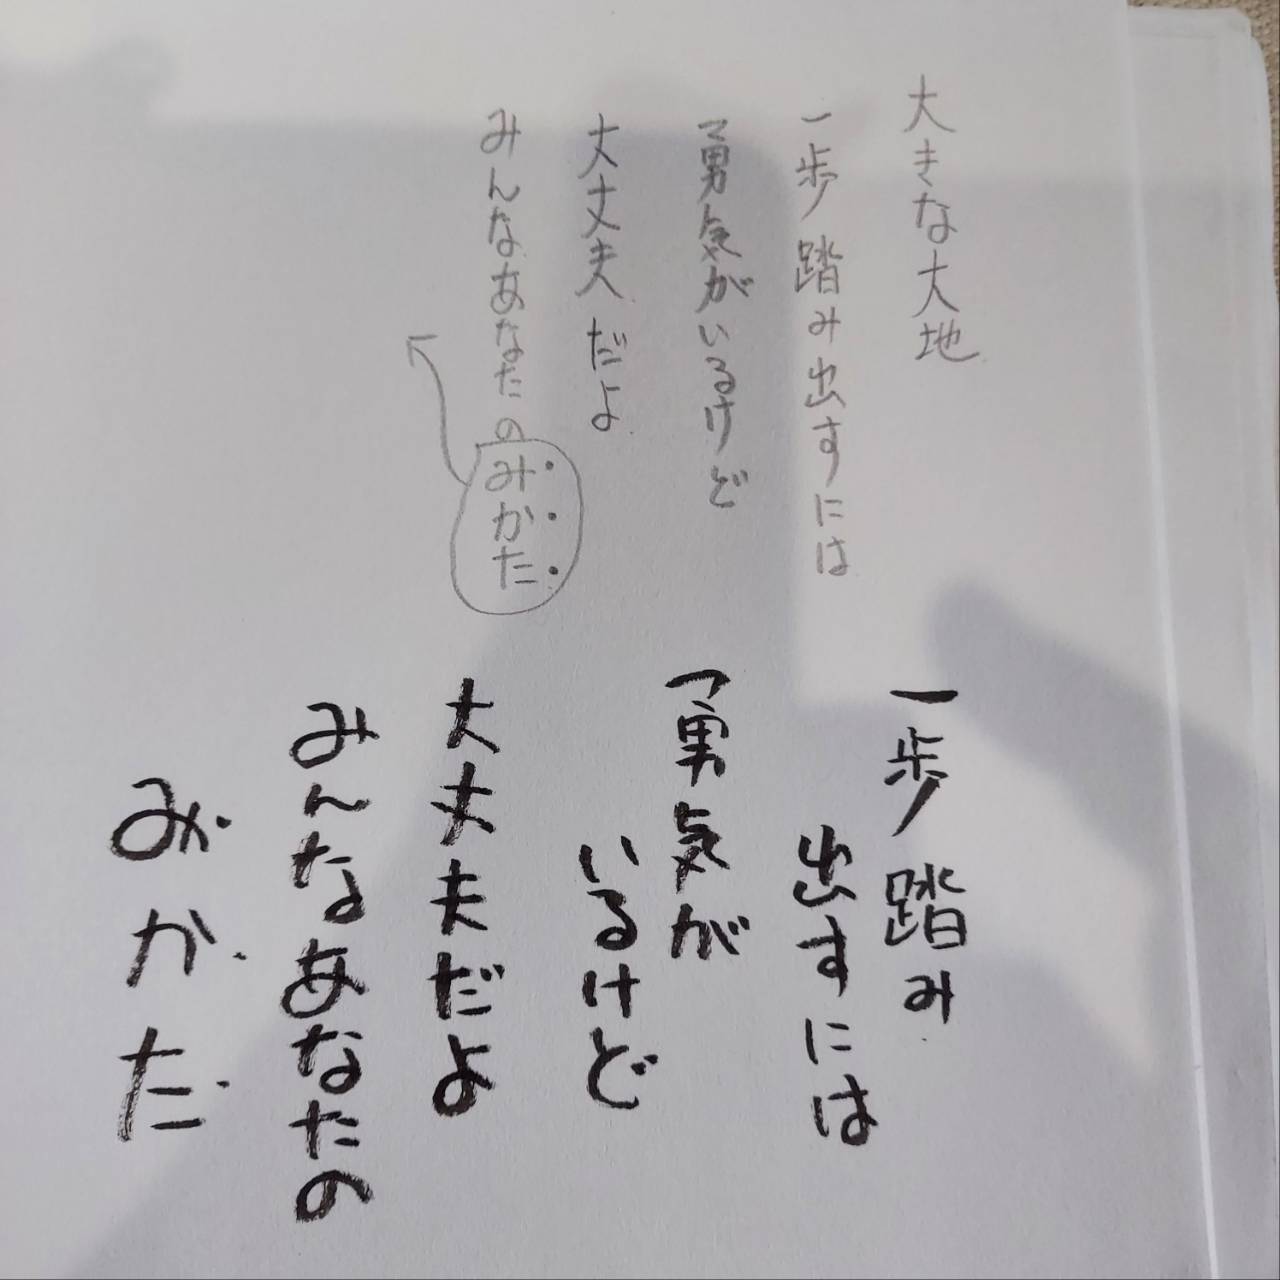 大きな大地
一歩踏み出すには
勇気がいるけど
大丈夫だよ
みんなあなたのみかた
一歩踏み
出すには
勇気が
いるけど
大丈夫だよ
みんなあなたの
みかた